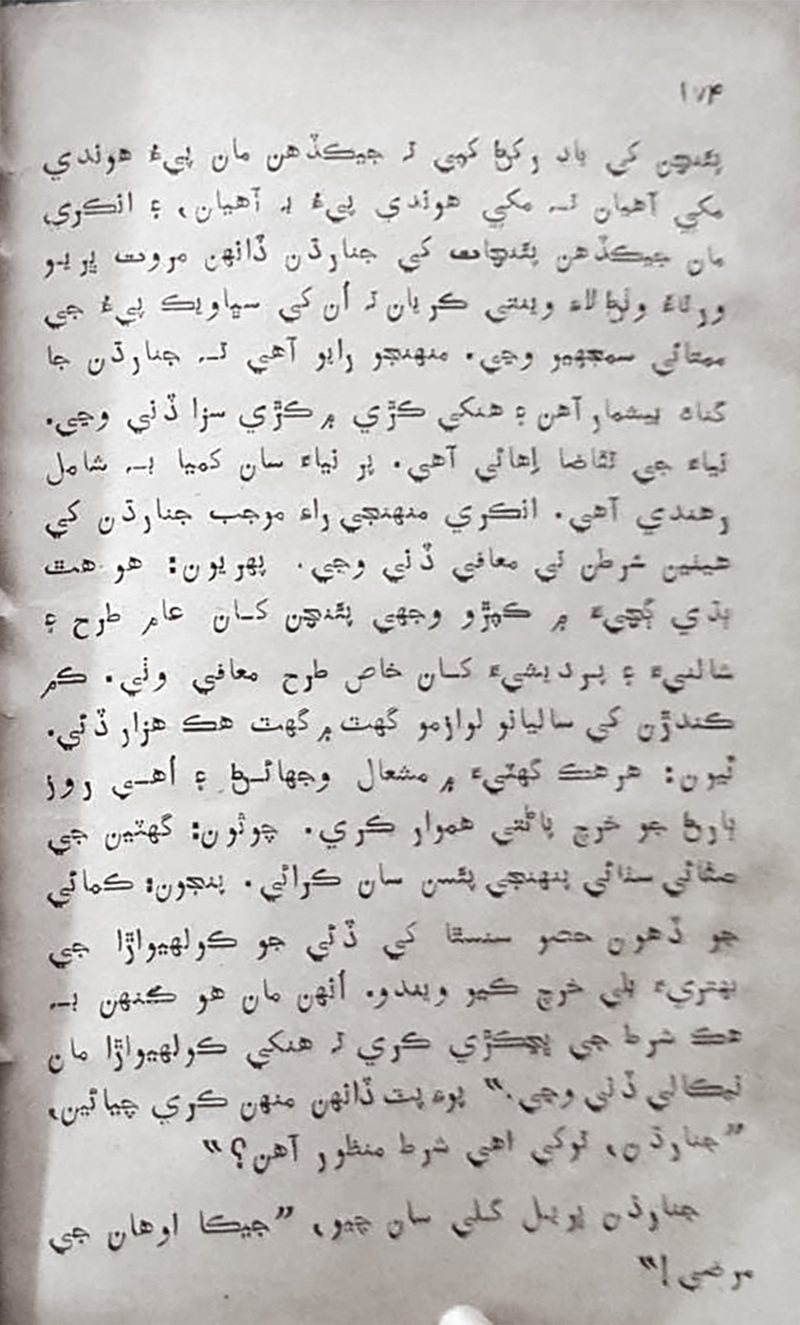 ۱۷۴
پئنچن کي ياد رکڻ کپي تہ جيڪڏهن مان پيءُ هوندي
مکي آهيان تہ مکي هوندي پيءُ بہ آهيان، ۽ انڪري
مان جيڪڏهن پئنچات کي جنارڌن ڏانهن مروت ڀريو
ورتاءُ وٺڻ لاءِ وينتي ڪريان تہ اُن کي سڀاويڪ پيءُ جي
ممتائي سمجهيو وڃي. منهنجو رايو آهي تہ جنارڌن جا
گناه بيشمار آهن ۽ هنکي ڪڙي ۾ ڪڙي سزا ڏني وڃي.
نياءَ جي تقاضا اِهائي آهي. پر نياءَ سان کميا بہ شامل
رهندي آهي. انڪري منهنجي راءِ موجب جنارڌن کي
هيٺين شرطن تي معافي ڏني وڃي. پهريون: هو هٿ
ٻڌي ڳچيءَ ۾ ڪپڙو وجهي پئنچن کان عام طرح ۽
شالنيءَ ۽ پرديشيءَ کان خاص طرح معافي وٺي. ڪم
ڪندڙن کي ساليانو لوازمو گهٽ ۾ گهٽ هڪ هزار ڏئي.
ٽيون: هرهڪ گهٽيءَ ۾ مشعال وجهائڻ ۽ اُهي روز
ٻارڻ جو خرچ پاڻتي هموار ڪري. چوٿون: گهٽين جي
صفائي سٺائي پنهنجي پئسن سان ڪرائي. پنجون: ڪمائي
جو ڏهون حصو سنسٿا کي ڏئي جو ڪولهيواڙا جي
بهتريءَ بلي خرچ ڪيو ويندو. اُنهن مان هو ڪنهن بہ
هڪ شرط جي ڀڃڪڙي ڪري تہ هنکي ڪولهيواڙا مان
نيڪالي ڏني وڃي.“ پوءِ پٽ ڏانهن منهن ڪري چيائين،
”جنارڌن، توکي اهي شرط منظور آهن؟“
جنارڌن ڀريل گلي سان چيو، ”جيڪا اوهان جي
مرضي!“